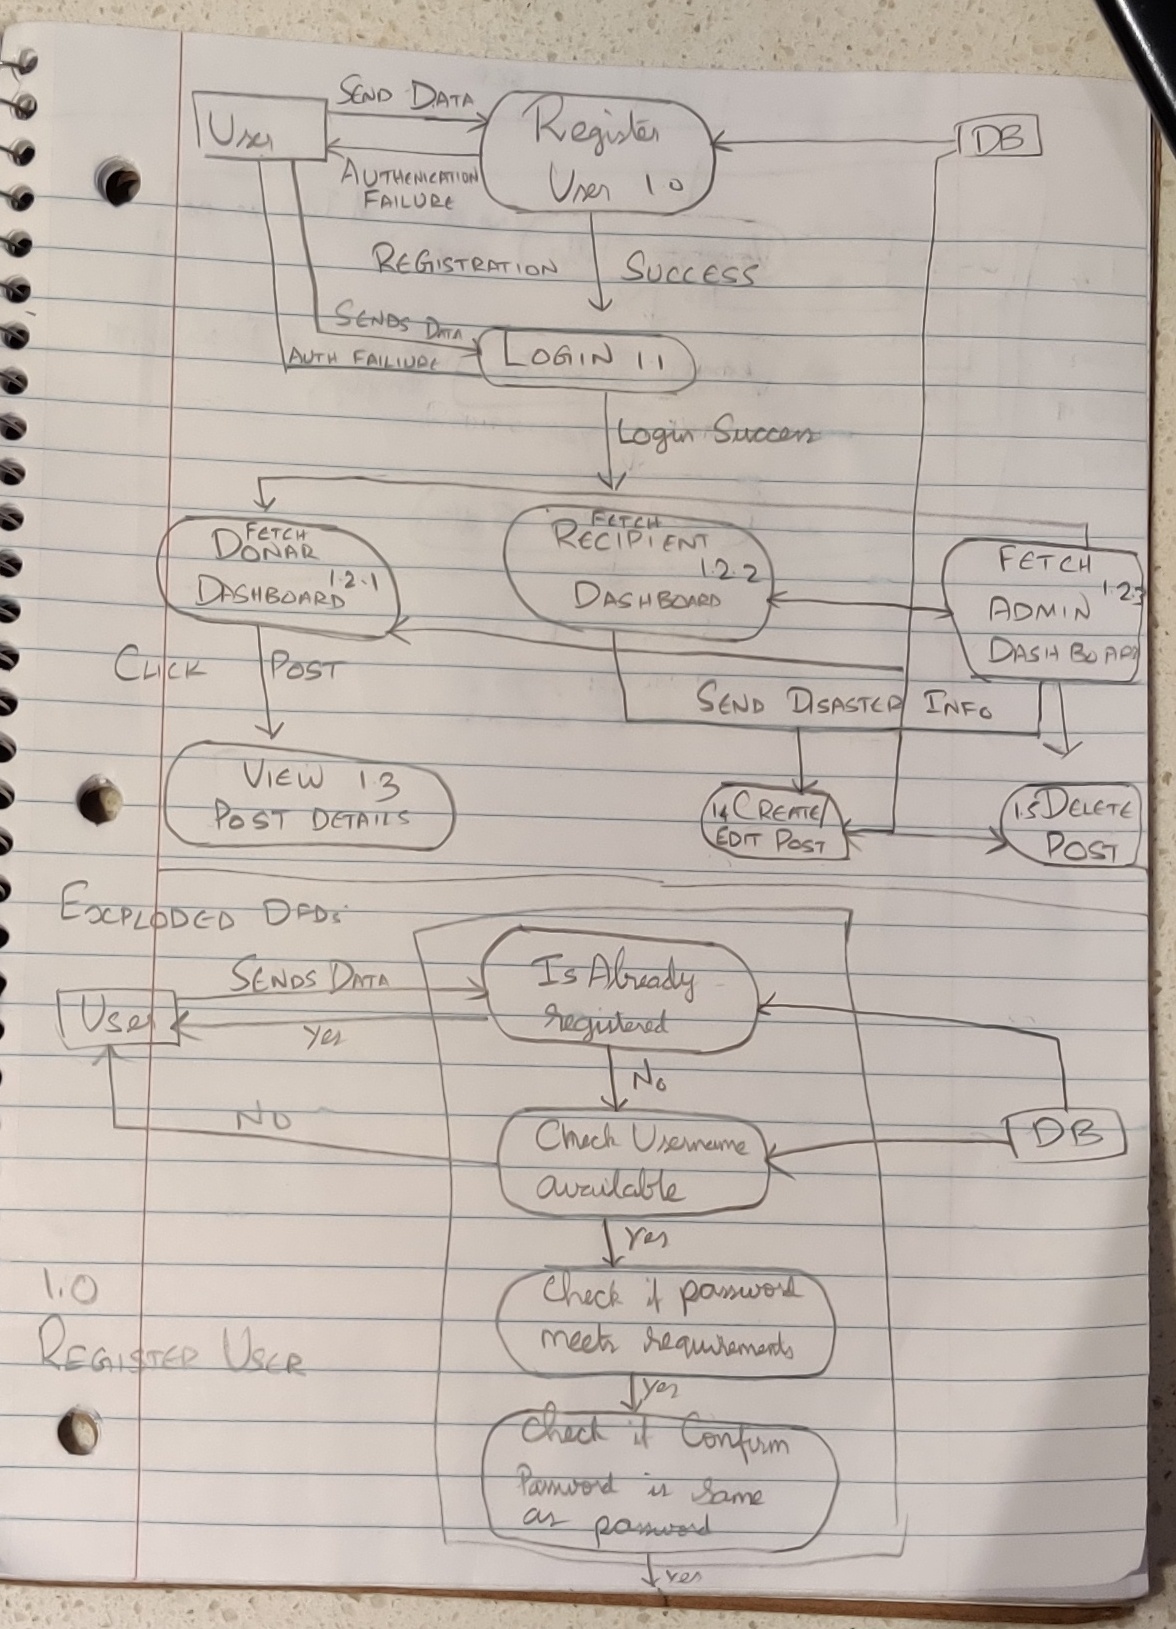 SEND DATA
User
Register
User 1.0
DB
AUTHENICATION
FAILURE
REGISTRATION
SUCCESS
SENDS DATA
AUTH FAILIURE
LOGIN 1.1
Login Success
FETCH
DONAR
1.2.1
DASHBOARD
FETCH
RECIPIENT
1.2.2
DASHBOARD
FETCH
1.2.3
ADMIN
DASHBOARD
CLICK POST
SEND DISASTER INFO
VIEW 1.3
POST DETAILS
1.4 CREATE/
EDIT POST
1.5 DELETE
POST
EXPLODED DFDs
SENDS DATA
User
Yes
Is Already
registered
No
NO
Check Username
available
DB
Yes
Check if password
meets requirements
1.0
REGISTER USER
Yes
Check if Confirm
Password is same
as password
Yes